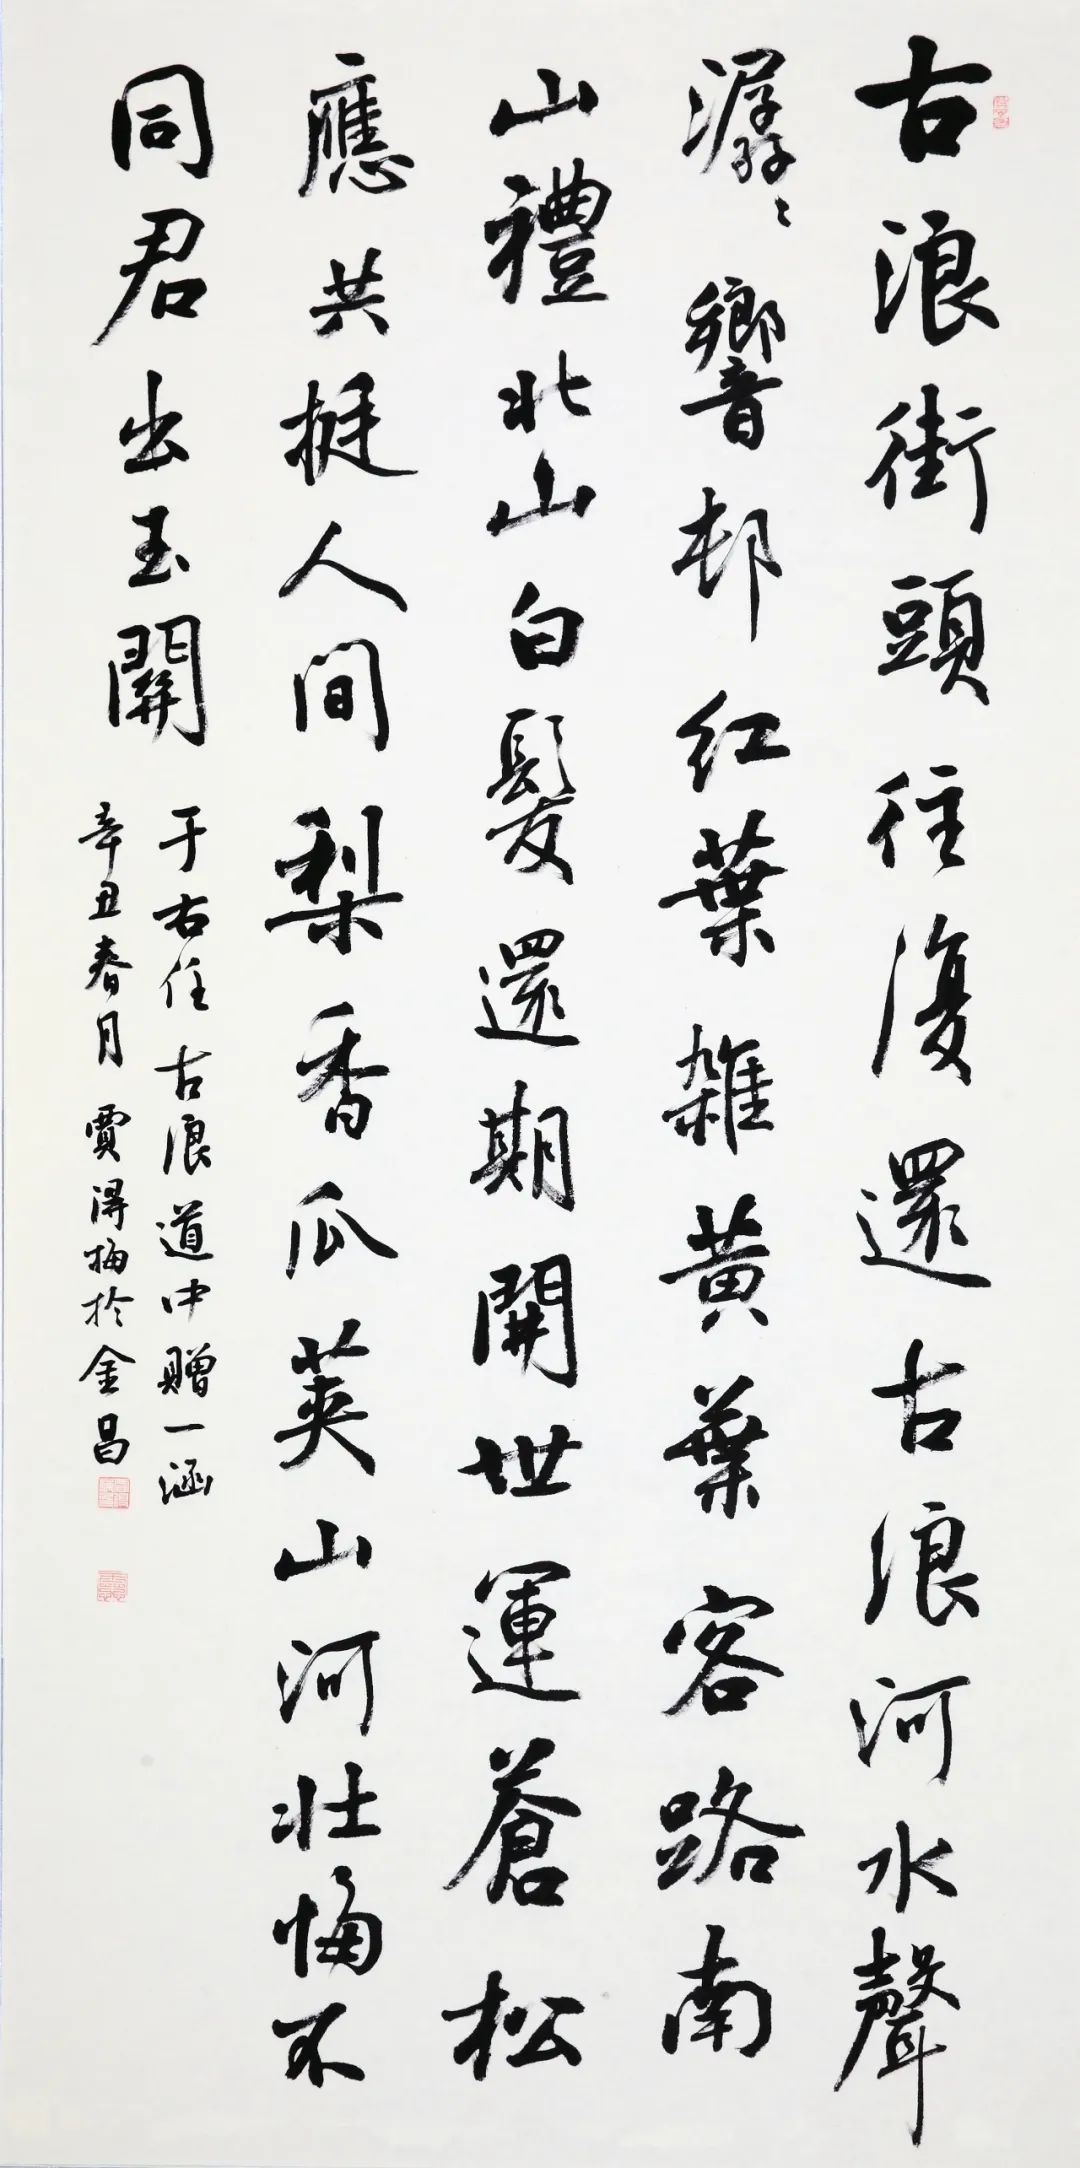 古浪街頭往復還古浪河水聲
潺〻響邨红葉雜黄葉客路南
山禮北山白髮還期開世運蒼松
應共挺人间梨香瓜美山河壮悔不
同君出玉關
于右任古浪道中赠一涵
辛丑春月賈得梅於金昌